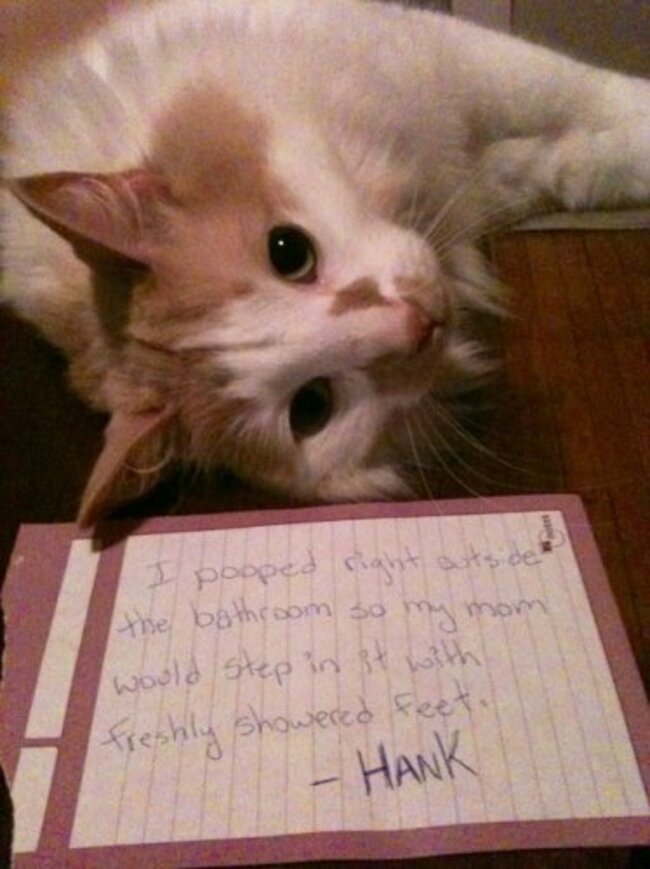 I pooped right outside
the bathroom so my mom
would step in it with
freshly showered feet.
- HANK